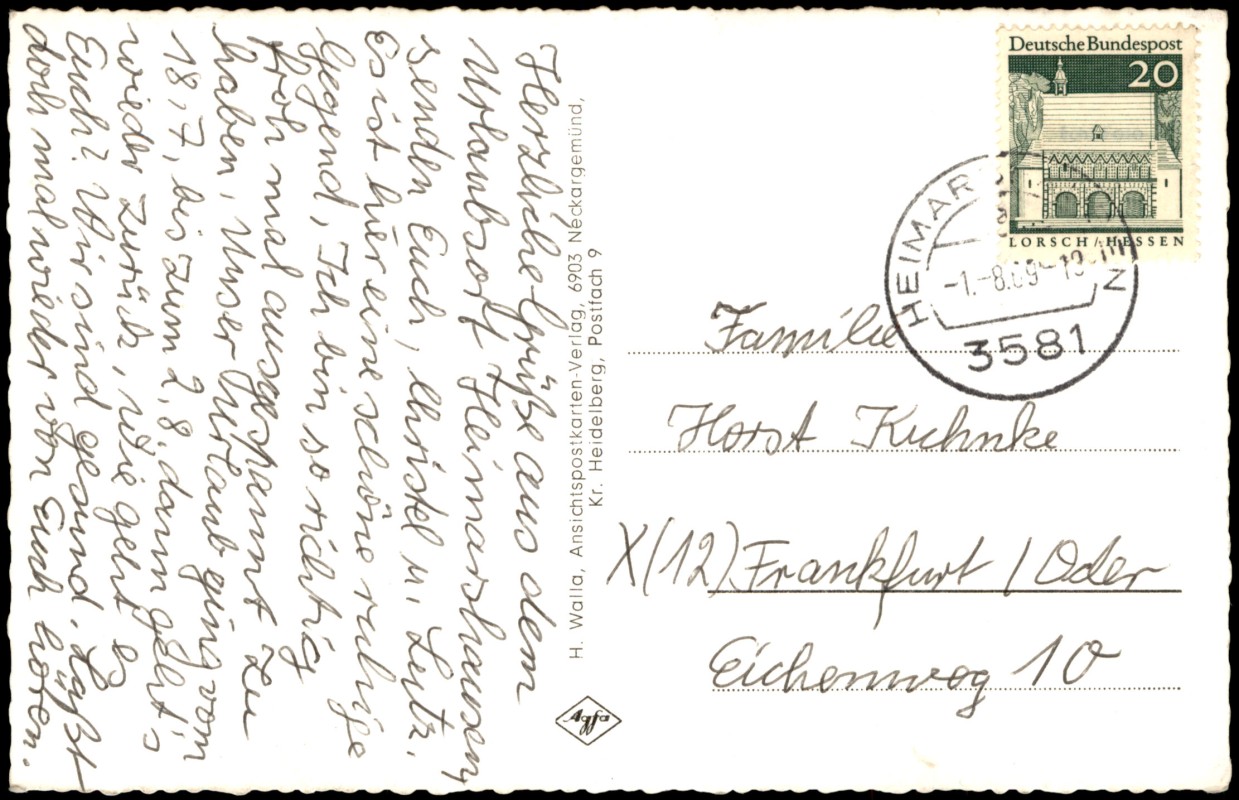 Herzliche Grüße aus dem
Urlaubsorf Heimarshausen
senden Euch, Christel u. Lutz.
Es ist hier eine schöne ruhige
Gegend, Ich bin so richtig
froh mal ausgespannt zu
haben, Unser Urlaub ging vom
18,7, bis zum 2,8, dann geht's
wieder zurück, wie geht es
Euch? Wir sind gesund, Laßt
doch mal wieder von Euch hören.
H. Walla, Ansichtspostkarten-Verlag, 6903 Neckargemünd,
Kr. Heidelberg, Postfach 9
Agfa
Deutsche Bundespost
20
LORSCH/HESSEN
-1.-8.69-
3581
Familie
Horst Kuhnke
X(12) Frankfurt / Oder
Eichenweg 10